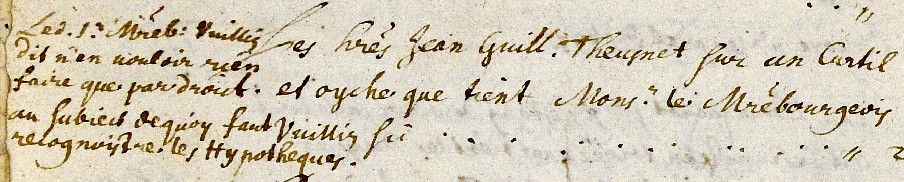 Led. Sr. Mreb: Vuilliz
dit n'en vouloir rien
faire que par droict.
au subiect de quoy faut Vuilliz
recognoistre les Hypotheques.
Les hrés Jean Guill. Theynet sur un Curtil
et oyche que tient Monsr. le Mrébourgeois
. . . . . . . . . . " 2